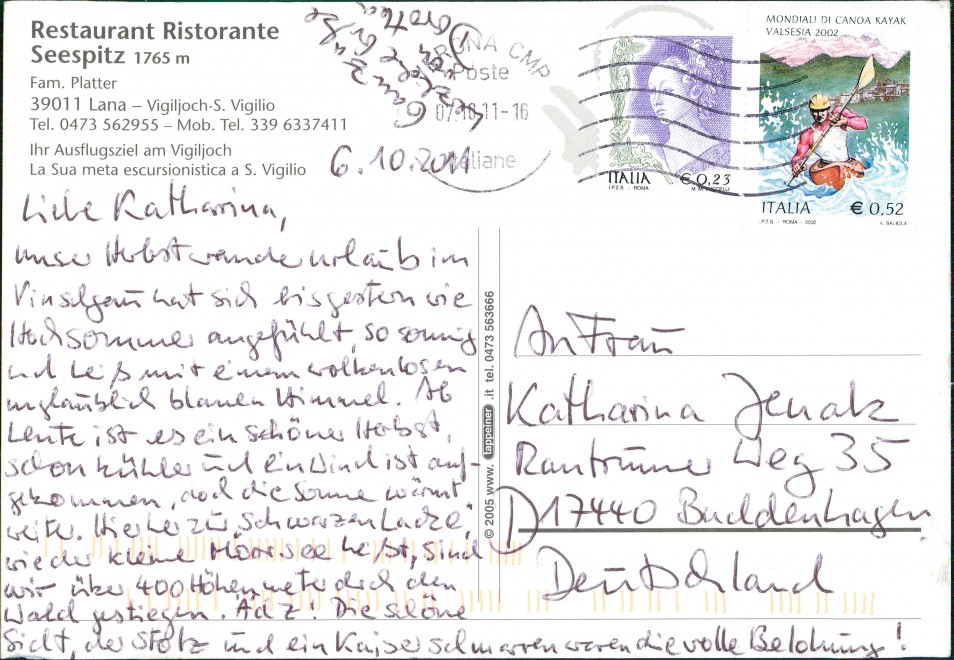 Restaurant Ristorante
Seespitz 1765 m
Fam. Platter
39011 Lana – Vigiljoch·S. Vigilio
Tel. 0473 562955 – Mob. Tel. 339 6337411
Ihr Ausflugsziel am Vigiljoch
La Sua meta escursionistica a S. Vigilio
6.10.2011
Liebe Katharina,
unser Herbstwanderurlaub im
Vinschgau hat sich bis gestern wie
Hochsommer angefühlt, so sonnig
und heiß mit einem wolkenlosen
unglaublich blauen Himmel. Ab
heute ist es ein schöner Herbst,
schon kühler und ein Wind ist auf-
gekommen, doch die Sonne wärmt
weiter. Hierher zur "Schwarzen Lacke",
wie der kleine Moorsee heißt, sind
wir über 400 Höhenmeter durch den
Wald gestiegen. Ächz! Die schöne
Sicht, der Stolz und ein Kaiserschmarren waren die volle Belohnung!
Ganz herzliche Grüße
von
Dorothea
© 2005 www. tappeiner .it tel. 0473 563666
ROMA CMP
Poste
07.10.11-16
Italiane
ITALIA € 0,23
I.P.Z.S. - ROMA
MONDIALI DI CANOA KAYAK
VALSESIA 2002
ITALIA € 0,52
I.P.Z.S. - ROMA - 2002 A. SALIOLA
An Frau
Katharina Jenak
Rantrumer Weg 35
D 17440 Buddenhagen
Deutschland